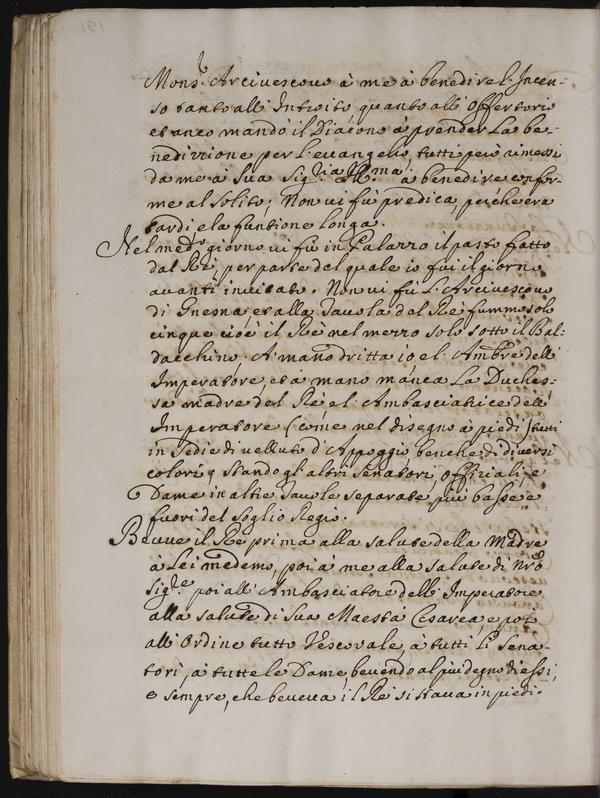 Mons.r Arcivescovo à me à benedire l'Incen-
so tanto all'Introito quanto all'Offertorio
et anco mandò il Diácono à prender La be-
nedizzione per l'euangelio, tutti però rimessi
da me à Sua Sig.ria Ill.ma à benedire confor-
me al Solito; Non ui fù predica, perche era
tardi e la funtione longa.
Nel med.o giorno ui fù in Palazzo il pasto fatto
dal Rè, per parte del quale io fui il giorno
auanti inuitato. Non ui fù L'Arciuescouo
di Gnesna et alla Tauola del Rè fummo solo
cinque cioè il Rè nel mezzo solo sotto il Bal-
dacchino. A mano dritta io e l'Ambre dell'
Imperatore, et à mano manca La Duches-
sa madre del Rè e l'Ambasciatrice dell'
Imperatore (come nel disegno à piedi) tutti
in Sedie di uelluto d'Appoggio benche di diuersi
colori, stando gl'altri Senatori, Offitiali, e
Dame in altre Tauole separate più basse e
fuori del Soglio Regio.
Beuue il Rè prima alla salute della Madre
à Lei medema, poi à me alla salute di Nro
Sig.re poi all'Ambasciatore dell'Imperatore
alla salute di Sua Maestà Cesarea, e poi
all'Ordine tutto Vescovale, à tutti li Sena-
tori, à tutte le Dame, beuendo al più degno di essi,
e sempre, che beueua il Rè si staua in piedi.